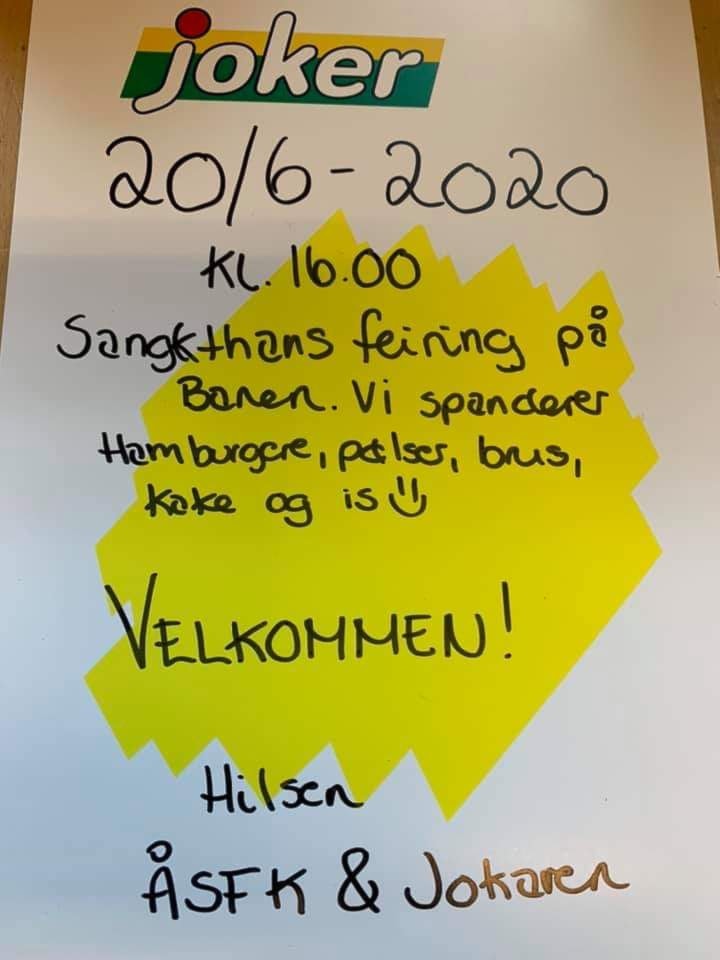 joker
20/6-2020
KL. 16.00
Sangkthans feiring på
Banen. Vi spanderer
Hamburgere, pølser, brus,
kake og is
VELKOMMEN!
Hilsen
ÅSFK & Jokaren